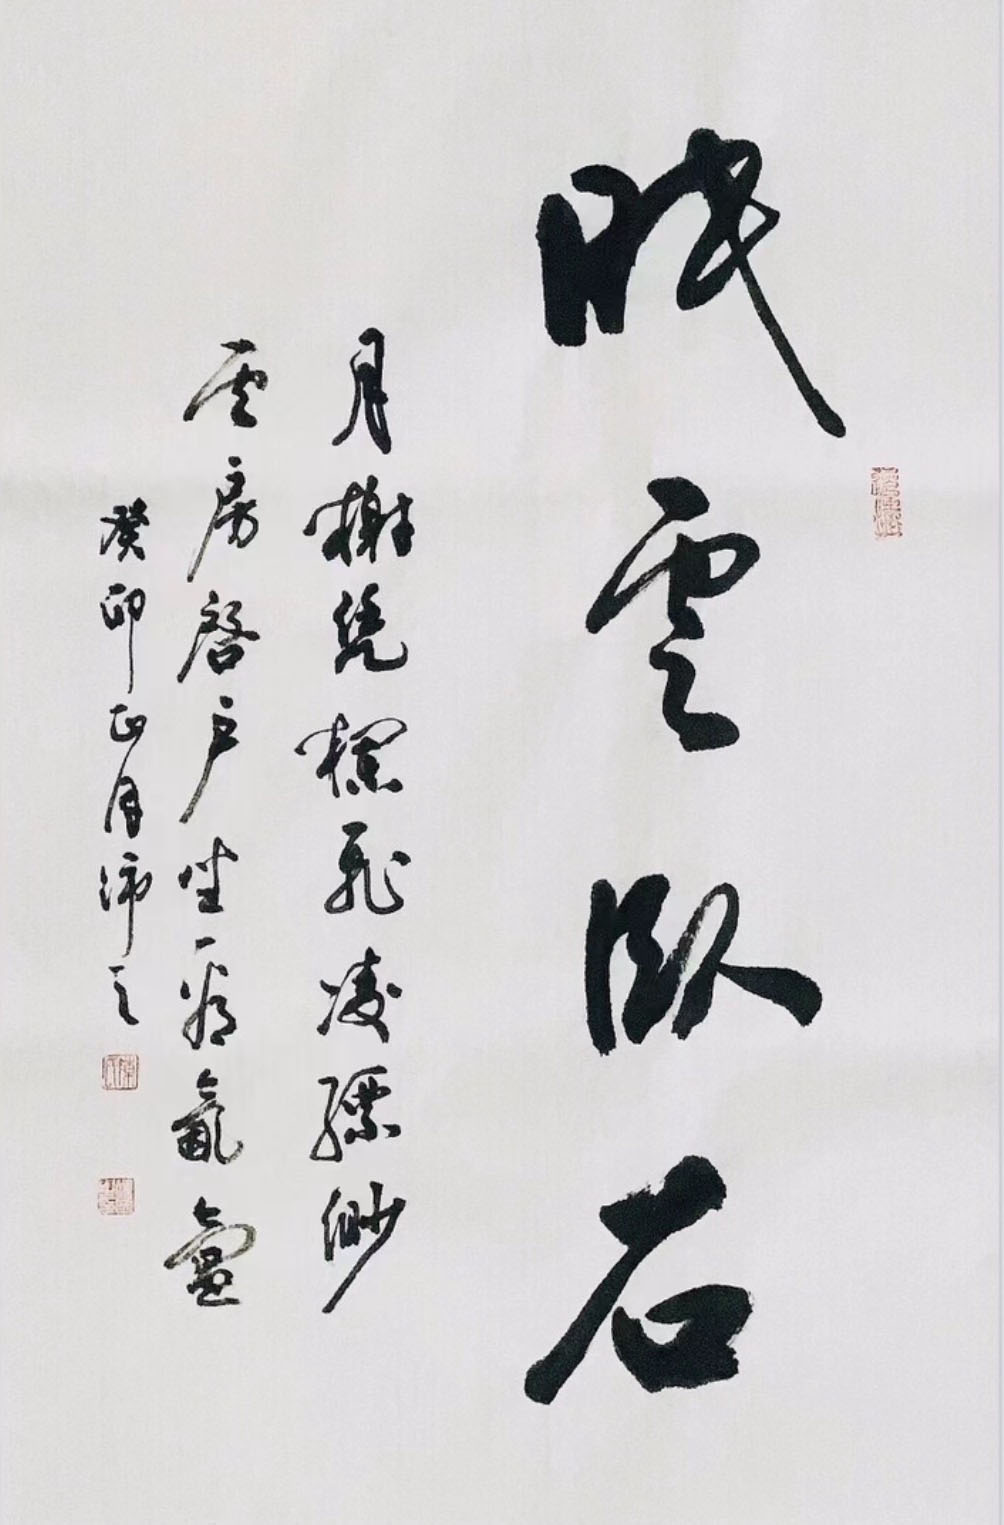 眠雲臥石
月榭凭欄飛凌縹緲
雲房啓户坐看氤氳
癸卯正月沛之